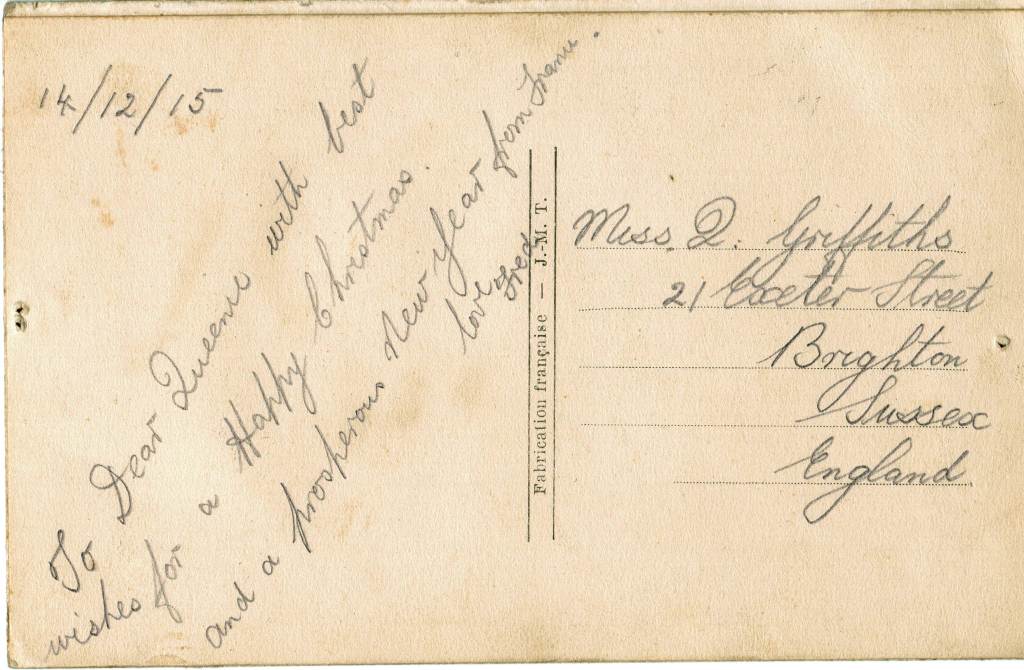 14/12/15
To Dear Queenie with best
wishes for a Happy Christmas.
and a prosperous New Year from
love Fred
Fabrication française — J.-M. T.
Miss. Q. Griffiths
21 Exeter Street
Brighton
Sussex
England